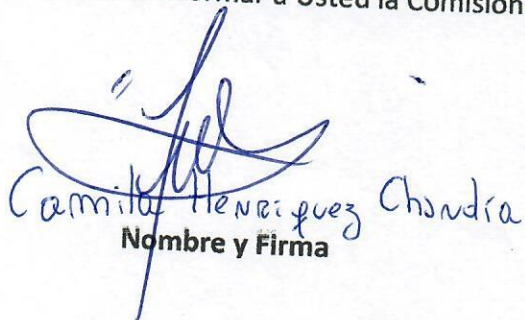 a Usted la Comisión
Camila Henriquez Chandía
Nombre y Firma